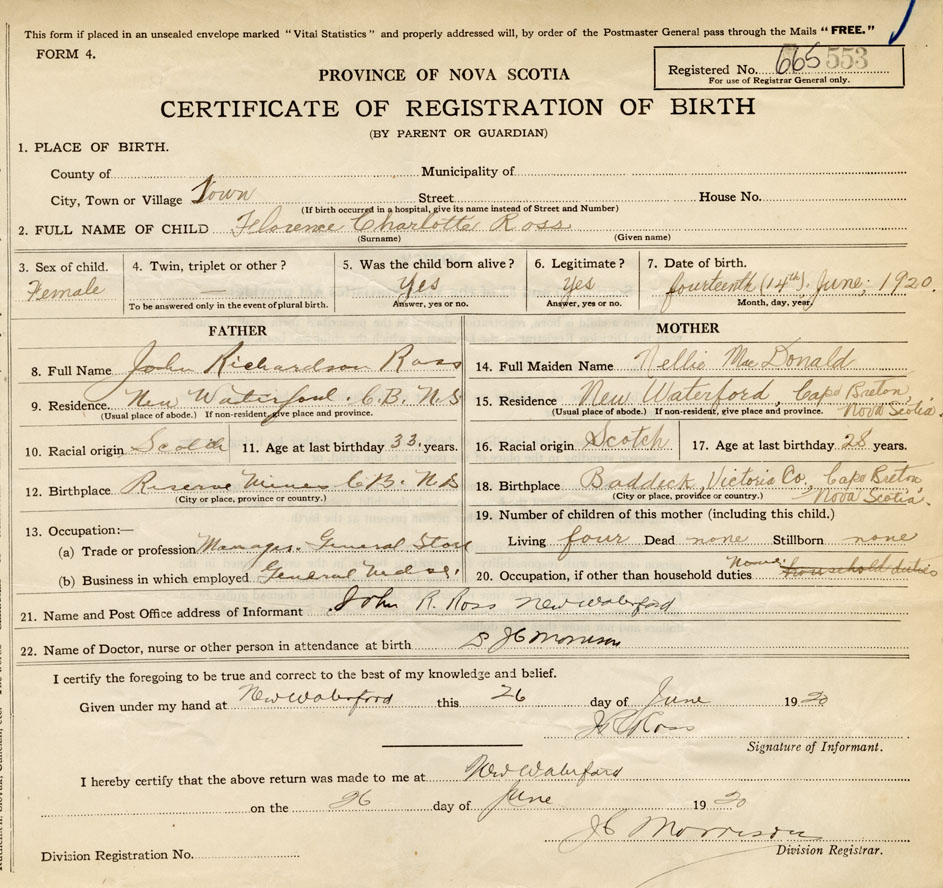 This form if placed in an unsealed envelope marked "Vital Statistics" and properly addressed will, by order of the Postmaster General pass through the Mails "FREE."
FORM 4.
Registered No. 665 553
For use of Registrar General only.
PROVINCE OF NOVA SCOTIA
CERTIFICATE OF REGISTRATION OF BIRTH
(BY PARENT OR GUARDIAN)
1. PLACE OF BIRTH.
County of Municipality of
City, Town or Village Town Street House No.
(If birth occurred in a hospital, give its name instead of Street and Number)
2. FULL NAME OF CHILD Florence Charlotte Ross
(Surname) (Given name)
3. Sex of child. 4. Twin, triplet or other? 5. Was the child born alive? 6. Legitimate? 7. Date of birth.
Female — Yes Yes fourteenth (14th). June, 1920.
To be answered only in the event of plural birth. Answer, yes or no. Answer, yes or no. Month, day, year.
FATHER
8. Full Name John Richardson Ross
9. Residence. New Waterford. C.B. N.S
(Usual place of abode.) If non-resident, give place and province.
10. Racial origin Scotch 11. Age at last birthday 33 years.
12. Birthplace Reserve Mines C.B. N.S
(City or place, province or country.)
13. Occupation:—
(a) Trade or profession Manager. General Store
(b) Business in which employed General Mdse.
MOTHER
14. Full Maiden Name Nellie Mac Donald
15. Residence New Waterford, Cape Breton,
(Usual place of abode.) If non-resident, give place and province. Nova Scotia.
16. Racial origin Scotch 17. Age at last birthday 28 years.
18. Birthplace Baddeck, Victoria Co, Cape Breton
(City or place, province or country.) Nova Scotia.
19. Number of children of this mother (including this child.)
Living four Dead none Stillborn none
20. Occupation, if other than household duties None household duties
21. Name and Post Office address of Informant John R. Ross New Waterford
22. Name of Doctor, nurse or other person in attendance at birth Morrison
I certify the foregoing to be true and correct to the best of my knowledge and belief.
Given under my hand at New Waterford this 26 day of June 1920
Ross
Signature of Informant.
I hereby certify that the above return was made to me at New Waterford
on the 26 day of June 1920
Morrison
Division Registrar.
Division Registration No.